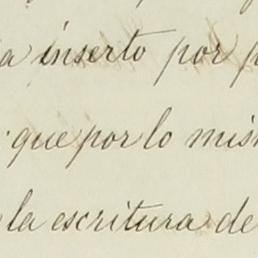 inserto por
que por lo
la escritura de